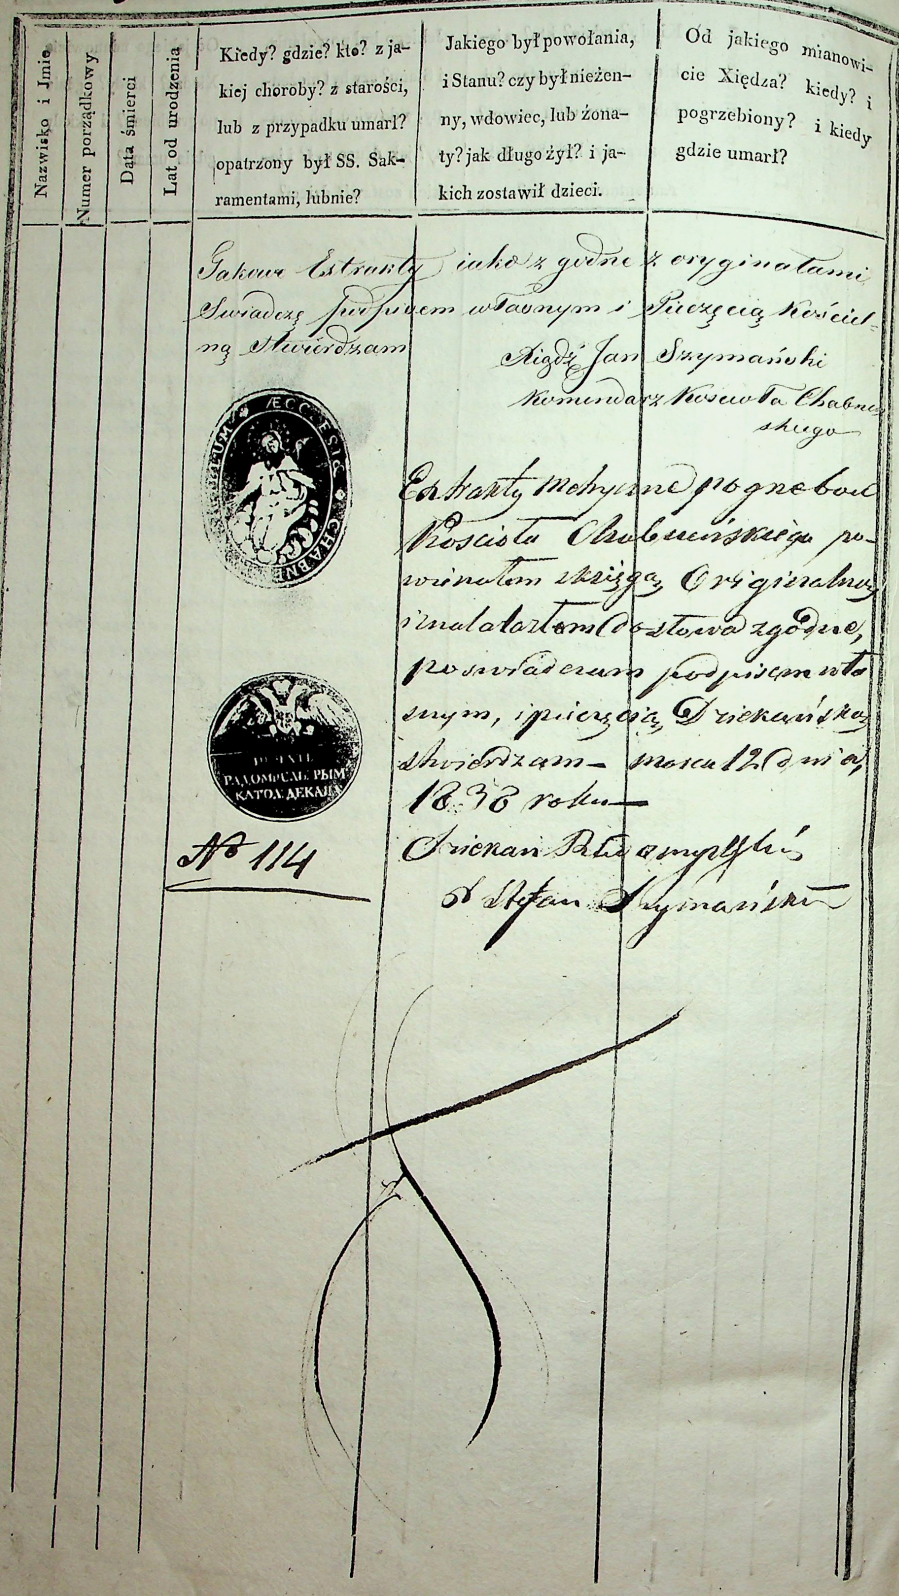 Nazwisko i Imie
Numer porządkowy
Data śmierci
Lat od urodzenia
Kiedy? gdzie? kto? z ja-
kiej choroby? z starości,
lub z przypadku umarł?
opatrzony był SS. Sak-
ramentami, lubnie?
Jakiego był powołania,
i Stanu? czy był nieżen-
ny, wdowiec, lub żona-
ty? jak długo żył? i ja-
kich zostawił dzieci.
Od jakiego mianowi-
cie Xiędza? kiedy? i
pogrzebiony? i kiedy
gdzie umarł?
Takowe Extrakty iako z godne z oryginałami
Swiadczę podpisem własnym i Pieczęcią Kościel-
ną Stwierdzam
Xiądz Jan Szymański
Komendarz Kościoła Chabne-
skiego
ÆCCLESIÆ CHABNE
Extrakty Metryczne pogrzebowe
Kościoła Chabneńskiego po-
wienałem z księgą Originalną
i znalazłem do słowa zgodne,
poswiadczam podpisem wła
snym, i pieczęcią Dziekańską
stwierdzam — marca 12 dnia,
1838 roku —
ПЕЧАТЬ
РАДОМЫСЛЬ: РЫМ
КАТОЛ: ДЕКАНА
№ 114
Dziekan Radomyslski
X Stefan Szymański